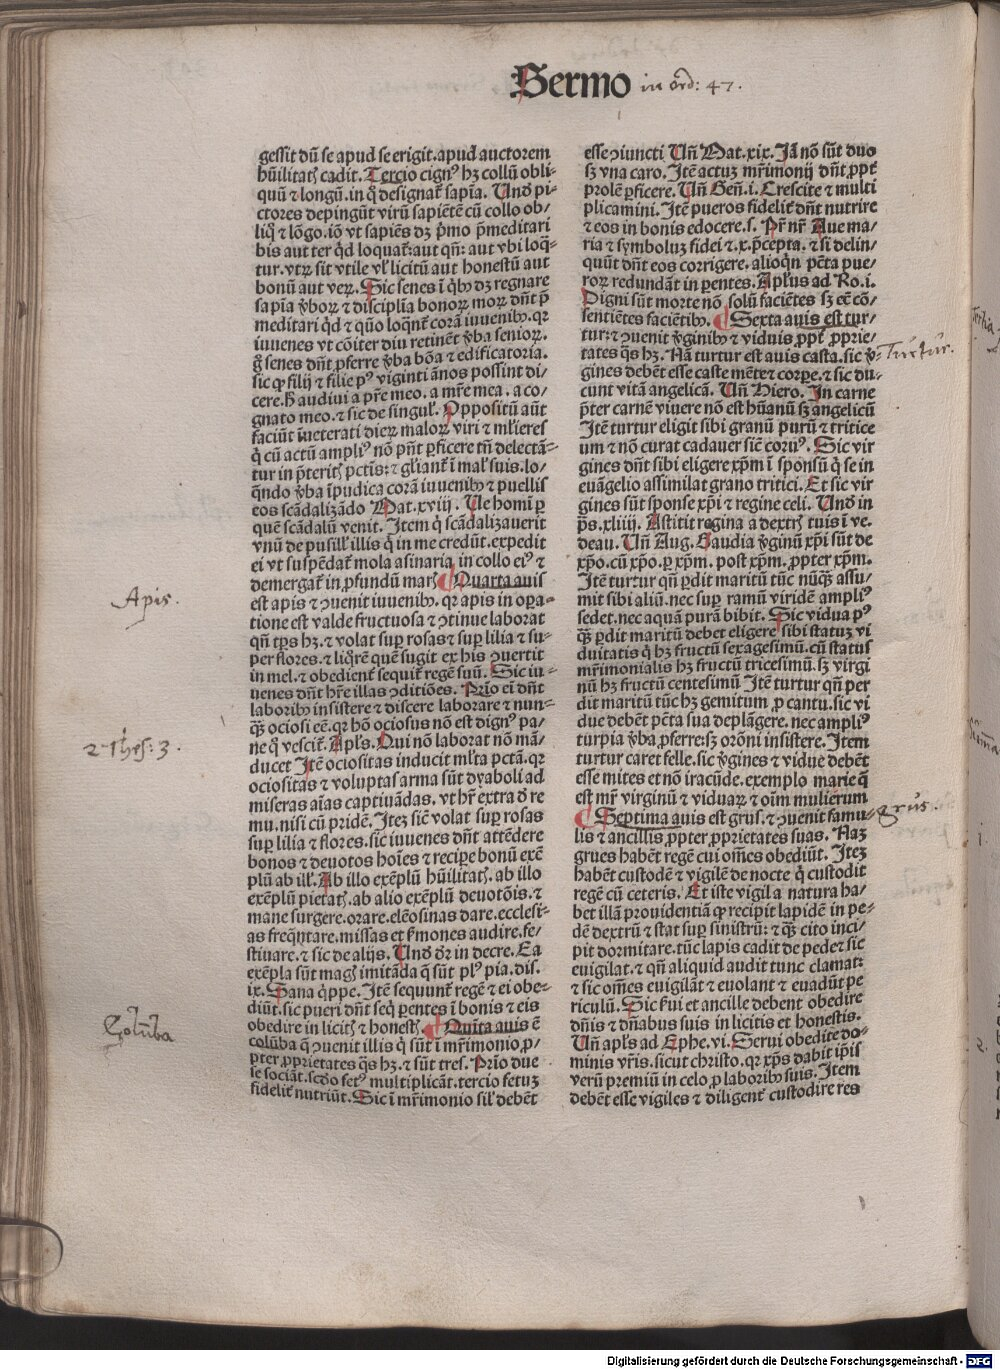 Sermo in ord: 47.
gessit dū se apud se erigit. apud auctorem
hūilitatꝭ cadit. Tercio cignꝰ hꝫ collū obli-
quū ⁊ longū. in q̊ designat᷑ sapīa. Und̄ pi-
ctores depingūt virū sapiētē cū collo ob/
liq̊ ⁊ lōgo. iō vt sapiēs dꝫ p̄mo p̄meditari
bis aut ter qd̓ loquat᷑: aut qn̄: aut vbi loq̄-
tur. vtꝝ sit vtile vl̓ licitū aut honestū aut
bonū aut veꝝ. Sic senes ī qbꝫ dꝫ regnare
sapīa v̓boꝝ ⁊ disciplīa bonoꝝ moꝝ dn̄t p̄
meditari qd̓ ⁊ qūo loqn̄t᷑ corā iuueniḃ. qꝛ
iuuenes vt cōiter diu retinēt v̓ba senioꝝ.
g̊ senes dn̄t ꝓferre v̓ba bōa ⁊ edificatoria.
sic ꝙ filij ⁊ filie pꝰ viginti ānos possint di/
cere. h̄ audiui a pr̄e meo. a mr̄e mea. a co/
gnato meo. ⁊ sic de singul̓. Oppositū aūt
faciūt īueterati dieꝝ maloꝝ viri ⁊ ml̓ieres
q̊ cū actū ampliꝰ nō pn̄t ꝑficere tn̄ delectā-
tur in p̄teritꝭ pctīs: ⁊ gl̓iant᷑ ī mal̓ suis. lo/
q̄ndo v̓ba īpudica corā iuueniḃ ⁊ puellis
eos scādalizādo Mat. xviij. Ue homī ꝑ
quē scādalū venit. Item q̊ scādalizauerit
vnū de pusill̓ illis q̊ in me credūt. expedit
ei vt suspēdat᷑ mola asinaria in collo eiꝰ ⁊
demergat᷑ in ꝓfundū marꝭ Quarta auis
est apis ⁊ ꝯuenit iuueniḃ. qꝛ apis in oꝑa-
tione est valde fructuosa ⁊ ꝯtinue laborat
qn̄ tp̄s hꝫ. ⁊ volat suꝑ rosas ⁊ suꝑ lilia ⁊ su-
per flores. ⁊ liq̊rē quē sugit ex his ꝯuertit
in mel. ⁊ obedient᷑ sequit᷑ regē suū. Sic iu-
uenes dn̄t hr̄e illas ꝯditiōes. Prīo eī dn̄t
laboriḃ insistere ⁊ discere laborare ⁊ nun-
qꝫ ociosi eē. qꝛ hō ociosus nō est dignꝰ pa/
ne q̊ vescit᷑. Apl̓s. Qui nō laborat nō mā/
ducet Itē ociositas inducit ml̓ta pctā. qꝛ
ociositas ⁊ voluptas arma sūt dyaboli ad
miseras aīas captiuādas. vt hr̄ extra d̓ re
mu. nisi cū pridē. Iteꝫ sic̄ volat suꝑ rosas
suꝑ lilia ⁊ flores. sic iuuenes dn̄t attēdere
bonos ⁊ deuotos hoīes ⁊ reciꝑe bonū exē
plū ab ill̓. Ab illo exēplū hūilitatꝭ. ab illo
exēplū pietatꝭ. ab alio exēplū deuotōis. ⁊
mane surgere. orare. elēosinas dare. ecclesi-
as freq̄ntare. missas et s̓mones audire. fe/
stiuare. ⁊ sic de alijs. Und̄ dr̄ in decre. Ea
exēpla sūt magꝭ imitāda q̄ sūt plꝰ pia. dis.
ix. Sana q̊ppe. Itē sequunt᷑ regē ⁊ ei obe-
diūt. sic pueri dn̄t seq̊ ꝑentes ī bonis ⁊ eis
obedire in licitꝭ ⁊ honestꝭ. Quīta auis ē
colūba q̄ ꝯuenit illis q̊ sūt ī mr̄imonio. ꝓ/
pter ꝓprietates q̄s hꝫ. ⁊ sūt tres. Prīo due
se sociāt. scd̓o fetꝰ multiplicāt. tercio fetuꝫ
fidelit᷑ nutriūt. Sic ī mr̄imonio sil̓ debēt
Apis.
2 Thes: 3.
Colūba
esse ꝯiuncti Un̄ Mat. xix. Iā nō sūt duo
sꝫ vna caro. Itē actuꝫ mr̄imonij dn̄t ꝓpt᷑
prolē ꝑficere. Un̄ Gen̄. i. Crescite ⁊ multi
plicamini. Itē pueros fidelit᷑ dn̄t nutrire
⁊ eos in bonis edocere. s. Pr̄ nr̄ Aue ma/
ria ⁊ symboluꝫ fidei ⁊ .x. p̄cepta. ⁊ si delin/
quūt dn̄t eos corrigere. alioqn̄ pctā pue/
roꝝ redundāt in ꝑentes. Apl̓us ad Ro. i.
Digni sūt morte nō solū faciētes sꝫ eē cō/
sentiētes faciētiḃ. Sexta auis est tur/
tur: ⁊ ꝯuenit v̓giniḃ ⁊ viduis ꝓpt᷑ ꝓprie/
tates q̄s hꝫ. Nā turtur est auis casta. sic v̓-
gines debēt esse caste mēte ⁊ corꝑe. ⁊ sic du-
cunt vitā angelicā. Un̄ Hiero. In carne
p̄ter carnē viuere nō est hūanū sꝫ angelicū
Itē turtur eligit sibi granū purū ⁊ tritice
um ⁊ nō curat cadauer sic̄ coruꝰ. Sic vir
gines dn̄t sibi eligere xp̄m ī sponsū q̊ se in
euāgelio assimilat grano tritici. Et sic vir
gines sūt sponse xp̄i ⁊ regine celi. Und̄ in
ps̄. xliiij. Astitit regina a dextrꝭ tuis ī ve.
deau. Un̄ Aug. Gaudia v̓ginū xp̄i sūt de
xp̄o. cū xp̄o. ꝑ xp̄m. post xp̄m. ꝓpter xp̄m.
Itē turtur qn̄ ꝑdit maritū tūc nūq̄ꝫ assu/
mit sibi aliū. nec suꝑ ramū viridē ampliꝰ
sedet. nec aquā purā bibit. Sic vidua pꝰ
qꝫ ꝑdit maritū debet eligere sibi statuꝫ vi
duitatis q̊ hꝫ fructū sexagesimū. cū status
mr̄imonialis hꝫ fructū tricesimū. sꝫ virgi
nū hꝫ fructū centesimū Itē turtur qn̄ per
dit maritū tūc hꝫ gemitum ꝓ cantu. sic vi
due debēt pctā sua deplāgere. nec ampliꝰ
turpia v̓ba ꝓferre: sꝫ orōni insistere. Item
turtur caret felle. sic v̓gines ⁊ vidue debēt
esse mites et nō iracūde. exemplo marie q̄
est mr̄ virginū ⁊ viduaꝝ ⁊ oīm mulierum
Septima auis est grus. ⁊ ꝯuenit famu-
lis ⁊ ancillis ꝓpter ꝓprietates suas. Naꝫ
grues habēt regē cui om̄es obediūt. Iteꝫ
habēt custodē ⁊ vigilē de nocte q̊ custodit
regē cū ceteris. Et iste vigil a natura ha/
bet illā prouidentiā ꝙ recipit lapidē in pe/
dē dextrū ⁊ stat suꝑ sinistrū: ⁊ qꝫ cito inci/
pit dormitare. tūc lapis cadit de pede ⁊ sic
euigilat. ⁊ qn̄ aliquid audit tunc clamat:
⁊ sic om̄es euigilāt ⁊ euolant ⁊ euadūt pe
riculū. Sic s̓ui et ancille debent obedire
dn̄is ⁊ dn̄abus suis in licitis et honestis.
Un̄ apl̓s ad Ephe. vi. Serui obedite do-
minis vr̄is. sicut christo. qꝛ xp̄s dabit ip̄is
verū premiū in celo ꝓ laboriḃ suis. Item
debēt esse vigiles ⁊ diligent᷑ custodire res
Turtur.
grus.
Digitalisierung gefördert durch die Deutsche Forschungsgemeinschaft - DFG